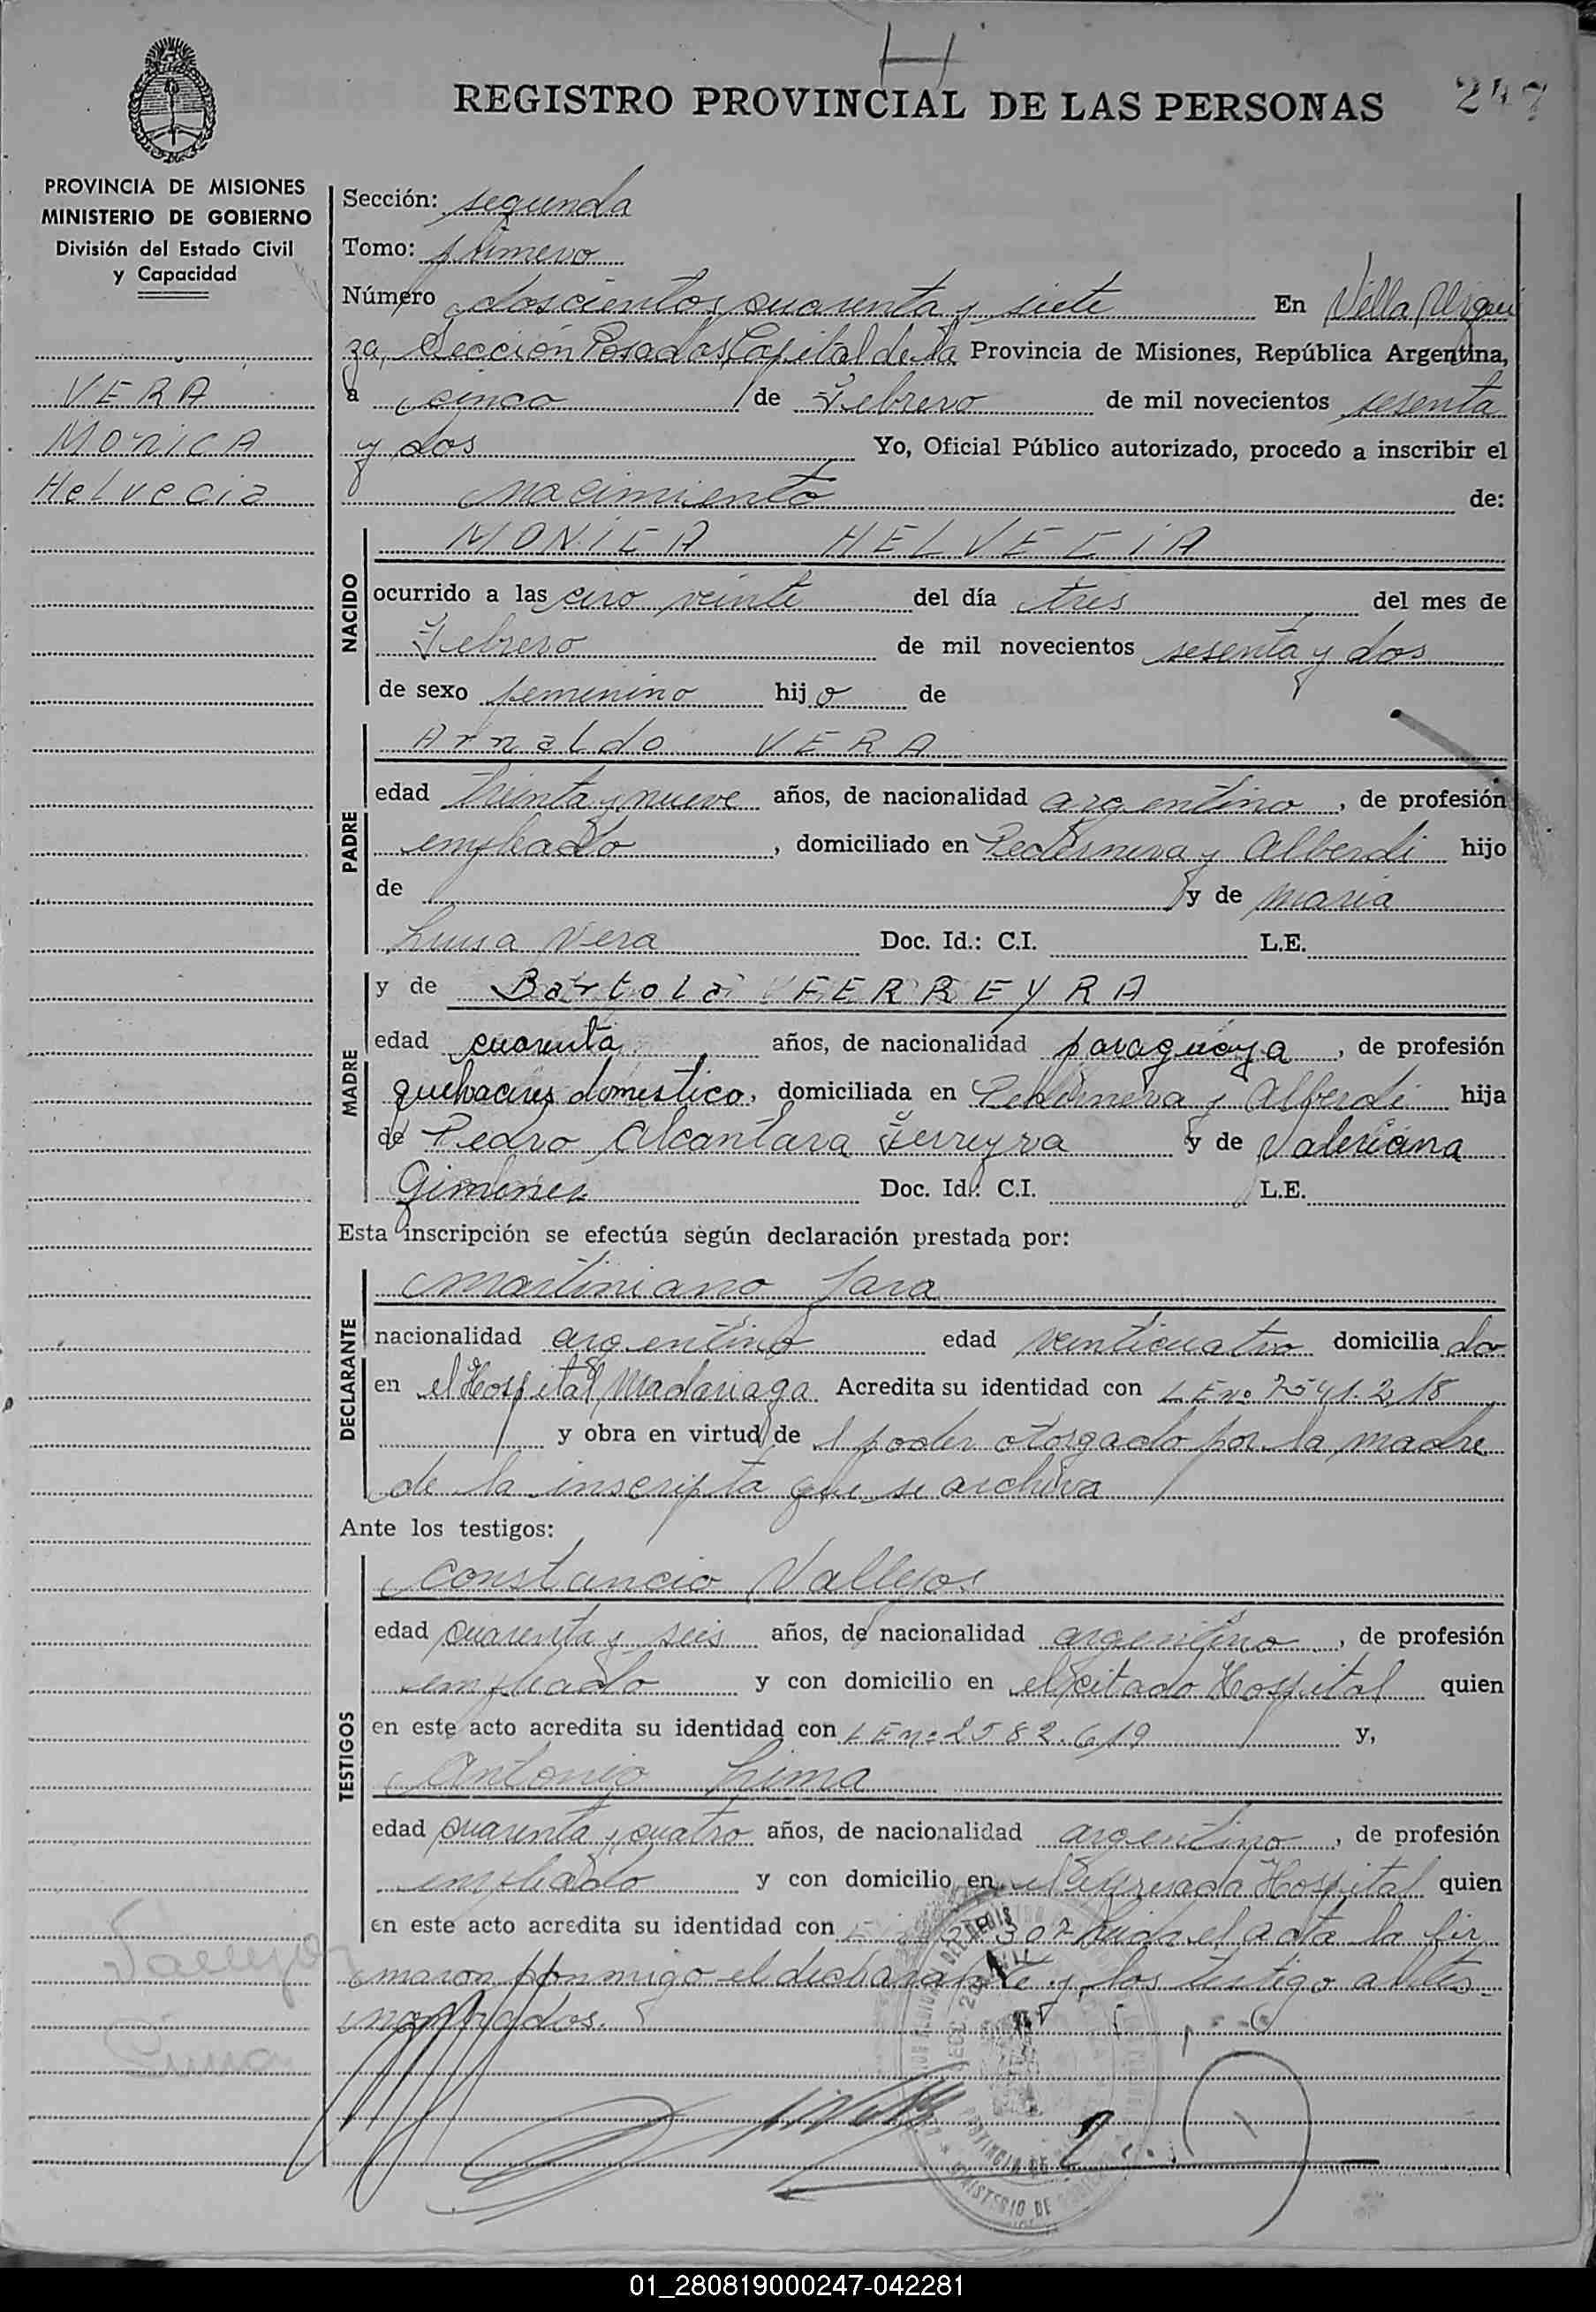 H
REGISTRO PROVINCIAL DE LAS PERSONAS
247
PROVINCIA DE MISIONES
MINISTERIO DE GOBIERNO
División del Estado Civil
y Capacidad
VERA
MONICA
Helvecia
Sección: segunda
Tomo: primero
Número doscientos cuarenta y siete En Villa Urqui
za, Sección Posadas, Capital de la Provincia de Misiones, República Argentina,
a cinco de Febrero de mil novecientos sesenta
y dos Yo, Oficial Público autorizado, procedo a inscribir el
nacimiento de:
NACIDO
MONICA HELVECIA
ocurrido a las cero veinte del día tres del mes de
Febrero de mil novecientos sesenta y dos
de sexo femenino hij o de
PADRE
Arnaldo VERA
edad treinta y nueve años, de nacionalidad argentino, de profesión
empleado, domiciliado en Pedernera y Alberdi hijo
de y de Maria
Luisa Vera Doc. Id.: C.I. L.E.
MADRE
y de Bartola FERREYRA
edad cuarenta años, de nacionalidad paraguaya, de profesión
quehaceres domestico, domiciliada en Pedernera y Alberdi hija
de Pedro Alcantara Ferreyra y de Valeriana
Gimenez Doc. Id.: C.I. L.E.
Esta inscripción se efectúa según declaración prestada por:
DECLARANTE
Martiniano Jara
nacionalidad argentino edad veinticuatro domicilia do
en el Hospital Madariaga Acredita su identidad con L E nº 7541.218
y obra en virtud de l poder otorgado por la madre
de la inscripta que se archiva
Ante los testigos:
TESTIGOS
Constancio Vallejos
edad cuarenta y seis años, de nacionalidad argentino, de profesión
empleado y con domicilio en el citado Hospital quien
en este acto acredita su identidad con L E nº 2582.619 y,
Antonio Lima
edad cuarenta y cuatro años, de nacionalidad argentino, de profesión
empleado y con domicilio en el expresado Hospital quien
en este acto acredita su identidad con 302 leida el acta la fir
maron conmigo el declarante y los testigo antes
nombrados.
Vallejos
Lima
01_280819000247-042281